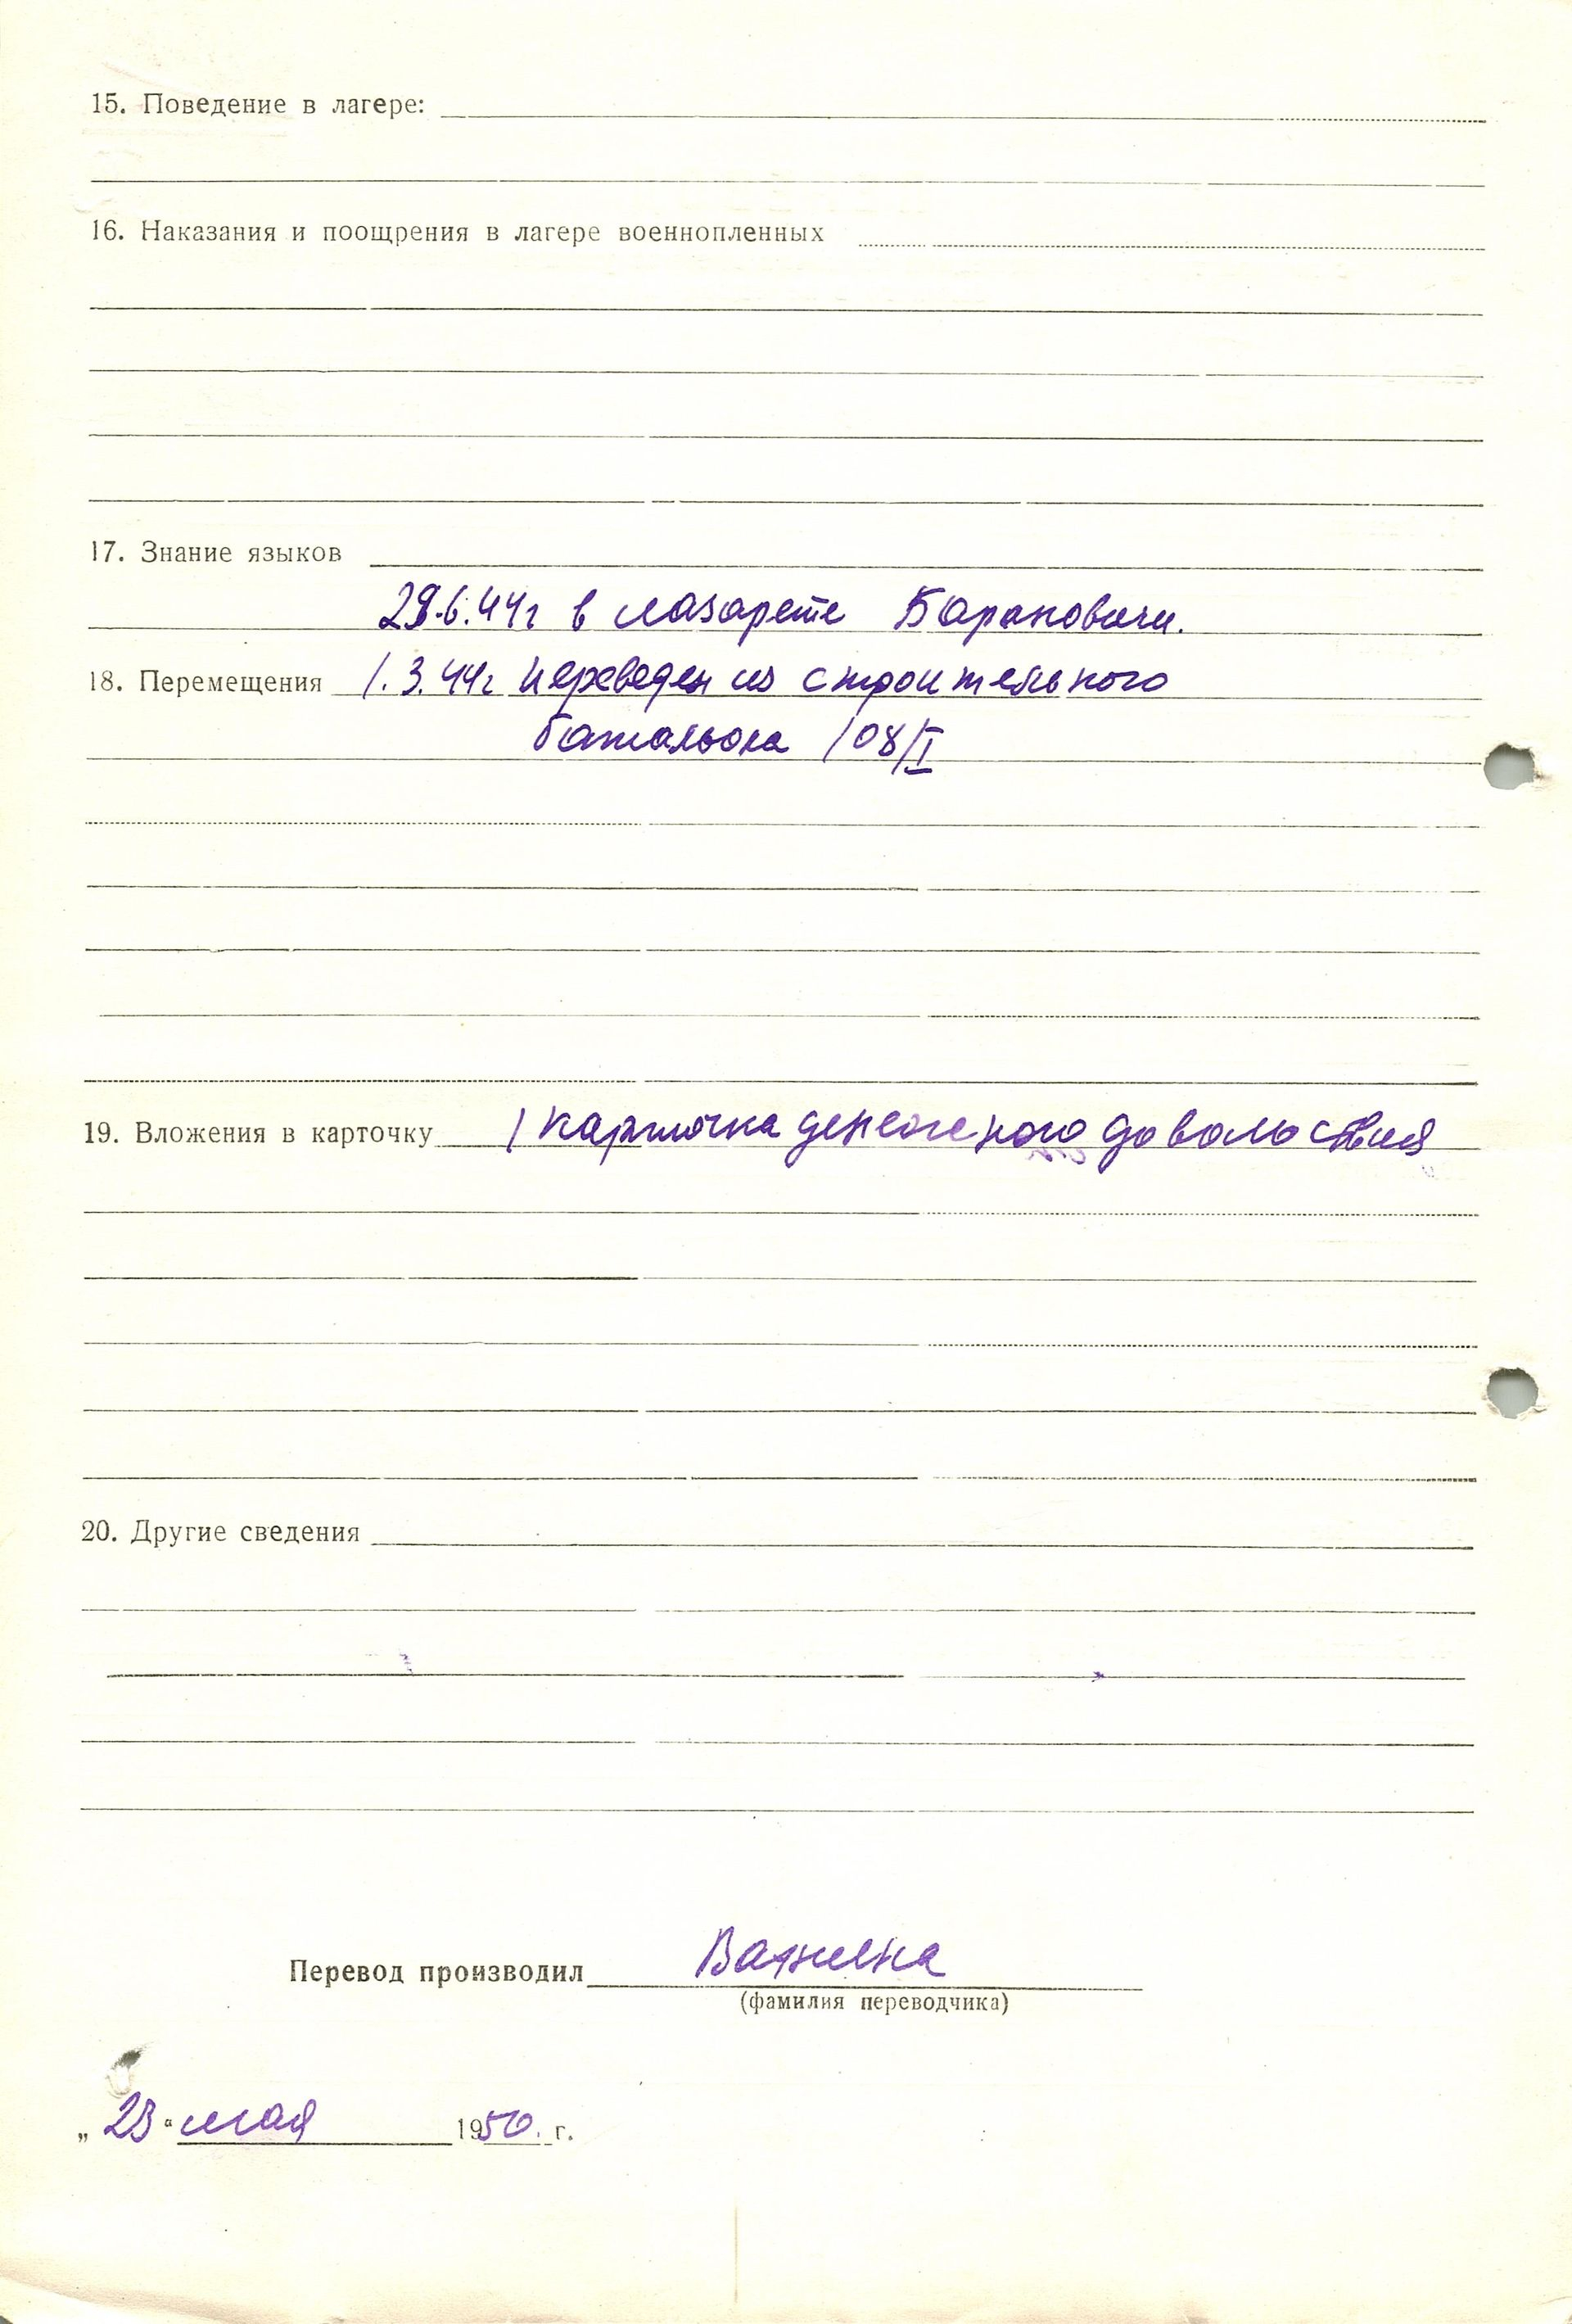 15. Поведение в лагере:
16. Наказания и поощрения в лагере военнопленных
17. Знание языков
29.6.44г в лазарете Барановичи.
18. Перемещения 1.3.44г переведен из строительного
батальона 108/I
19. Вложения в карточку 1 карточка денежного довольствия
20. Другие сведения
Перевод производил
(фамилия переводчика)
„23“ мая 1950. г.